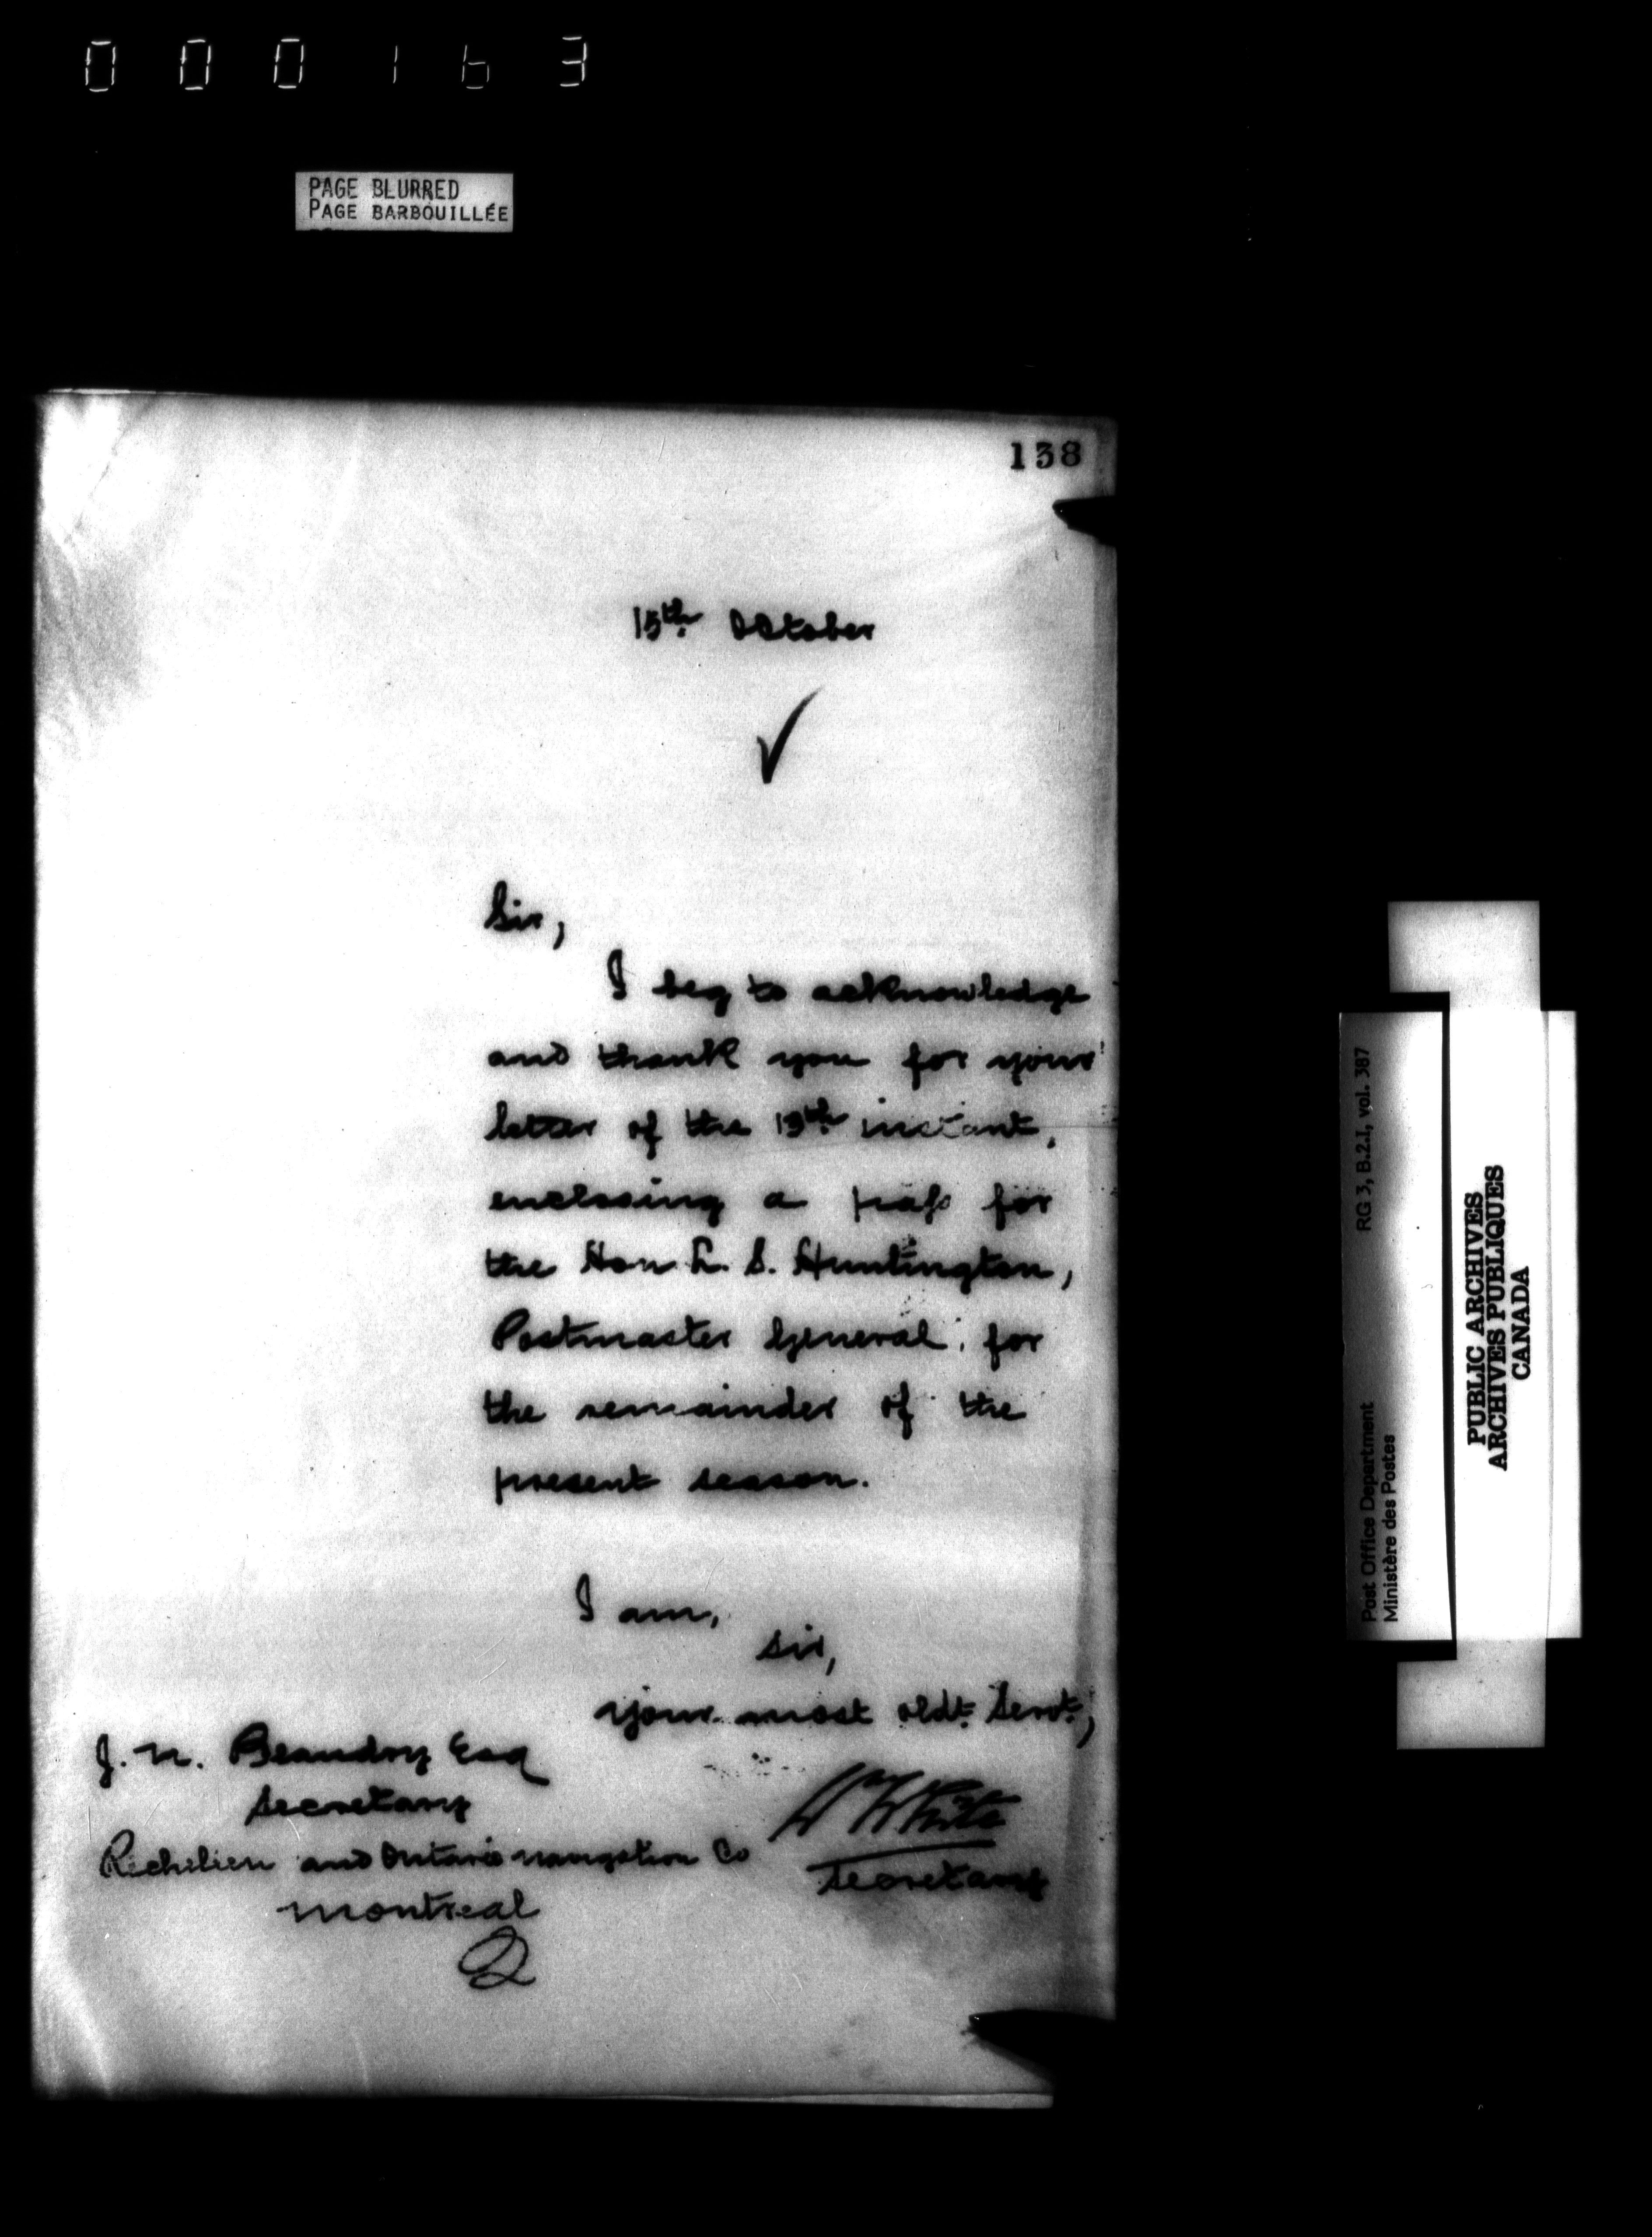 000163
PAGE BLURRED
PAGE BARBOUILLÉE
138
15th. October
Sir,
I beg to acknowledge
and thank you for your
letter of the 13th. instant,
enclosing a pass for
the Hon L. S. Huntington,
Postmaster General, for
the remainder of the
present season.
I am,
Sir,
your most obdt. Servt.,
J. N. Beaudry Esq
Secretary
Richilieu and Ontario navigation Co
Montreal
Q
W White
Secretary
RG 3, B.2.1, vol. 387
Post Office Department
Ministère des Postes
PUBLIC ARCHIVES
ARCHIVES PUBLIQUES
CANADA